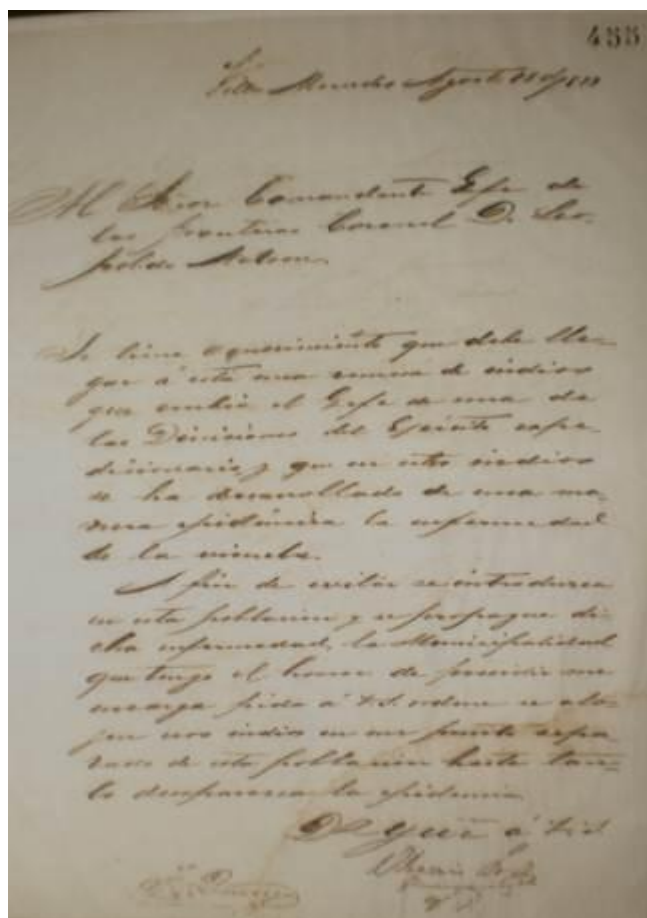 455
Villa Mercedes Agosto
Al Señor Comandante Gefe de
las fronteras Coronel D. Leo-
poldo Nelson.
Se tiene conocimiento que debe lle-
gar á esta una remesa de indios
que embia el Gefe de una de
las Divisiones del Ejército espe-
dicionario, y que en estos indios
se ha desarrollado de una ma-
nera epidémica la enfermedad
de la viruela.
A fin de evitar se introdusca
en esta poblacion y se propague di-
cha enfermedad, la Municipalidad
que tengo el honor de presidir me
encarga pida á V.S. ordene se alo-
jen esos indios en un punto sepa-
rado de esta poblacion hasta tan-
to desaparesca la epidemia.
Ds gue á V.S.